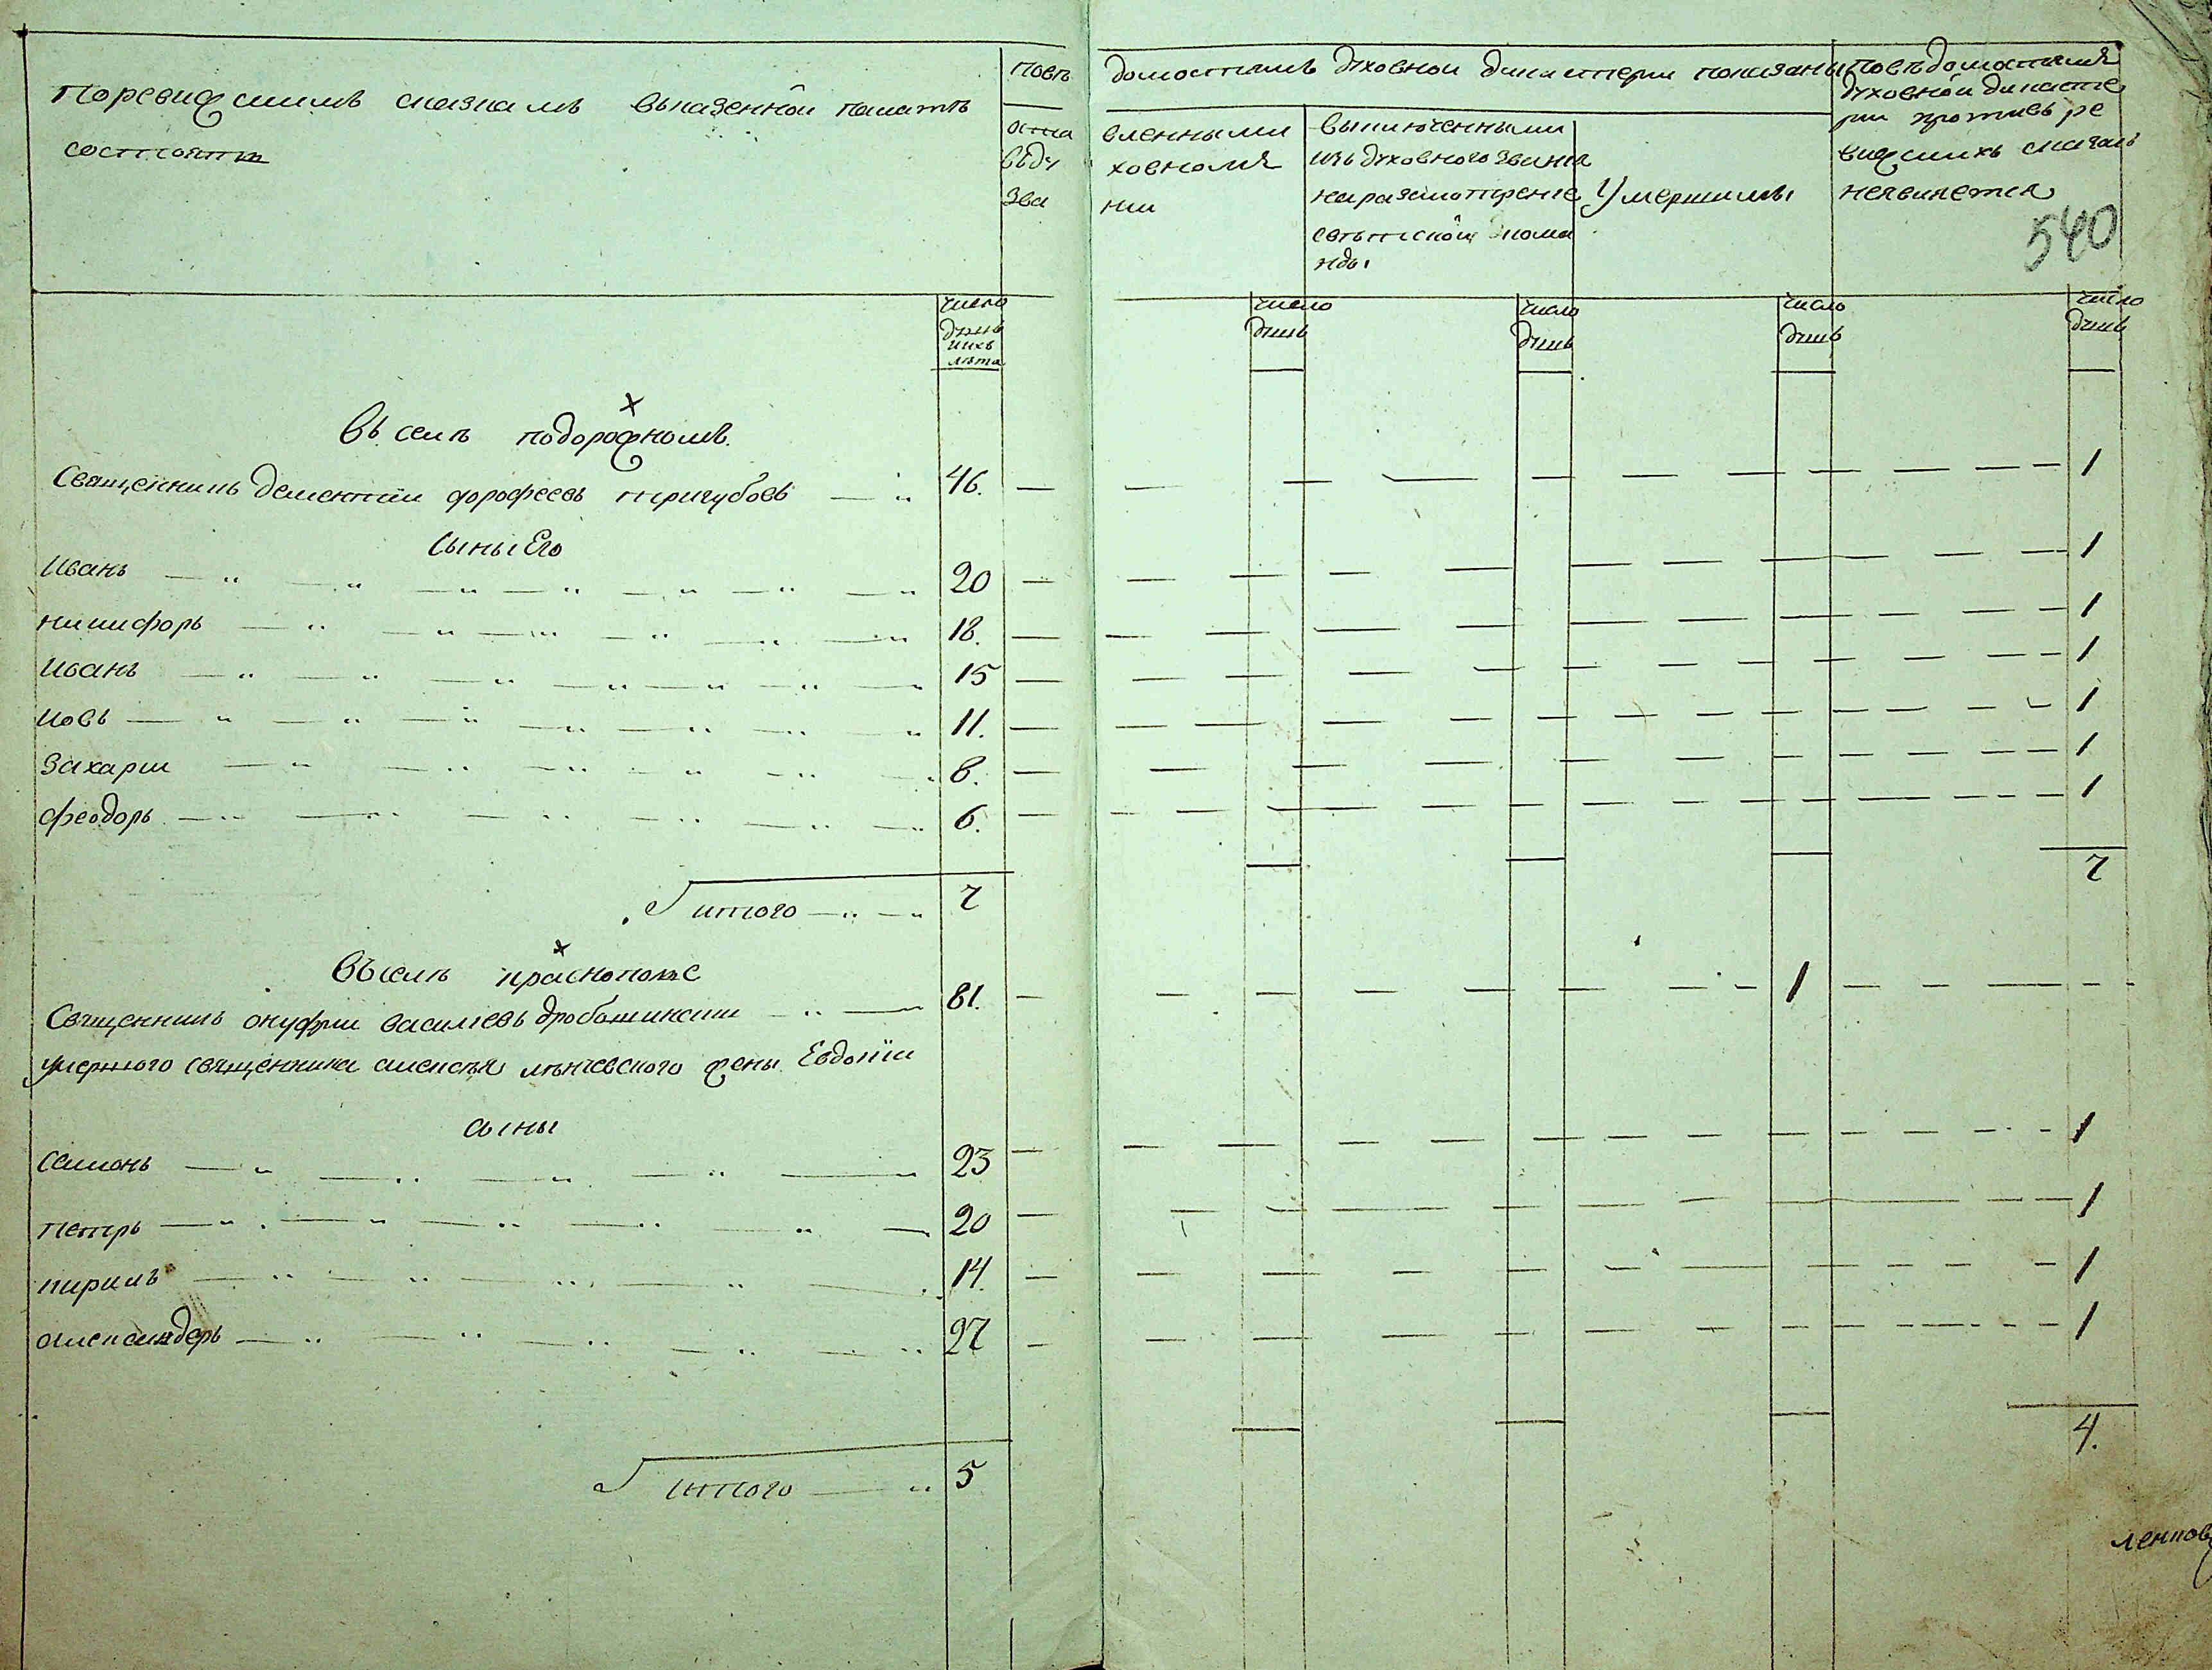 Поревижскимъ сказкамъ вказенной палатѣ
состоятъ
повѣ домостямъ духовной дикастерии показаны
оста вленными
въду ховномъ
зва нии
выключенными
изъ духовного звания
наразсмотрение
светской кома
нды
Умершимы
повѣдомостямъ
духовной дикасте
рии противъ ре
вижскихъ сказокъ
неявляется
540
число
душъ
ихъ
лѣта
число
душъ
число
душъ
число
душъ
число
душъ
Въ селѣ подорожномъ.
Священникъ дементии дорофеевъ пиригубовъ 46. 1
сыны Его
Иванъ 20 1
никифоръ 18. 1
Иванъ 15 1
Иовъ 11. 1
Захарии 8. 1
феодоръ 6. 1
итого 7 7
Въ селѣ краснополе
Священникъ онуфрии василиевъ дробашинскии 81. 1
умершого священника алексея лѣнчевского жены Евдокии
сыны
Самионъ 23 1
петръ 20 1
кирилъ 14. 1
александеръ 27 1
итого 5 4.